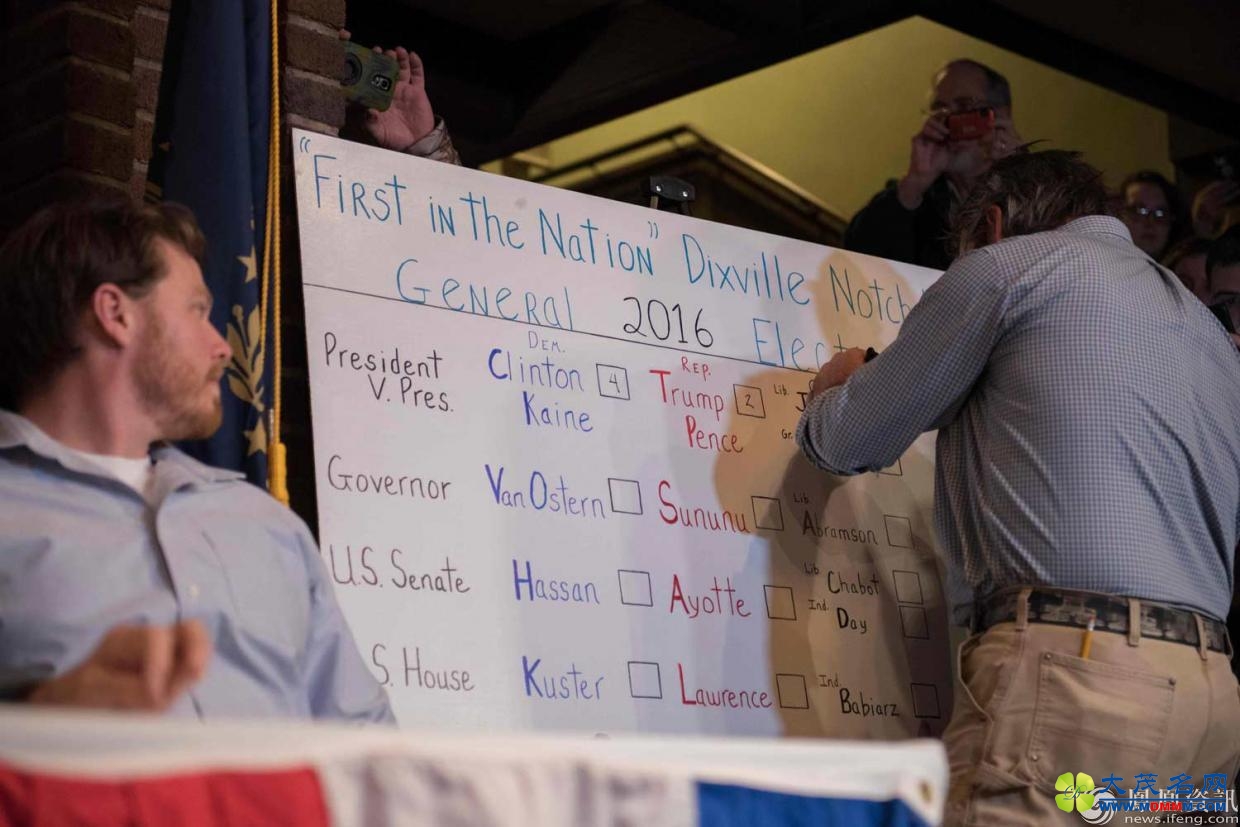 "First in the Nation" Dixville Notch
General 2016 Elect
DEM. REP. Lib.
President Clinton 4 Trump 2 J
V. Pres. Kaine Pence Gr.
Governor Van Ostern Sununu Lib. Abramson
U.S. Senate Hassan Ayotte Lib. Chabot
Ind. Day
S. House Kuster Lawrence Ind. Babiarz
大茂名网
凰資訊
news.ifeng.com